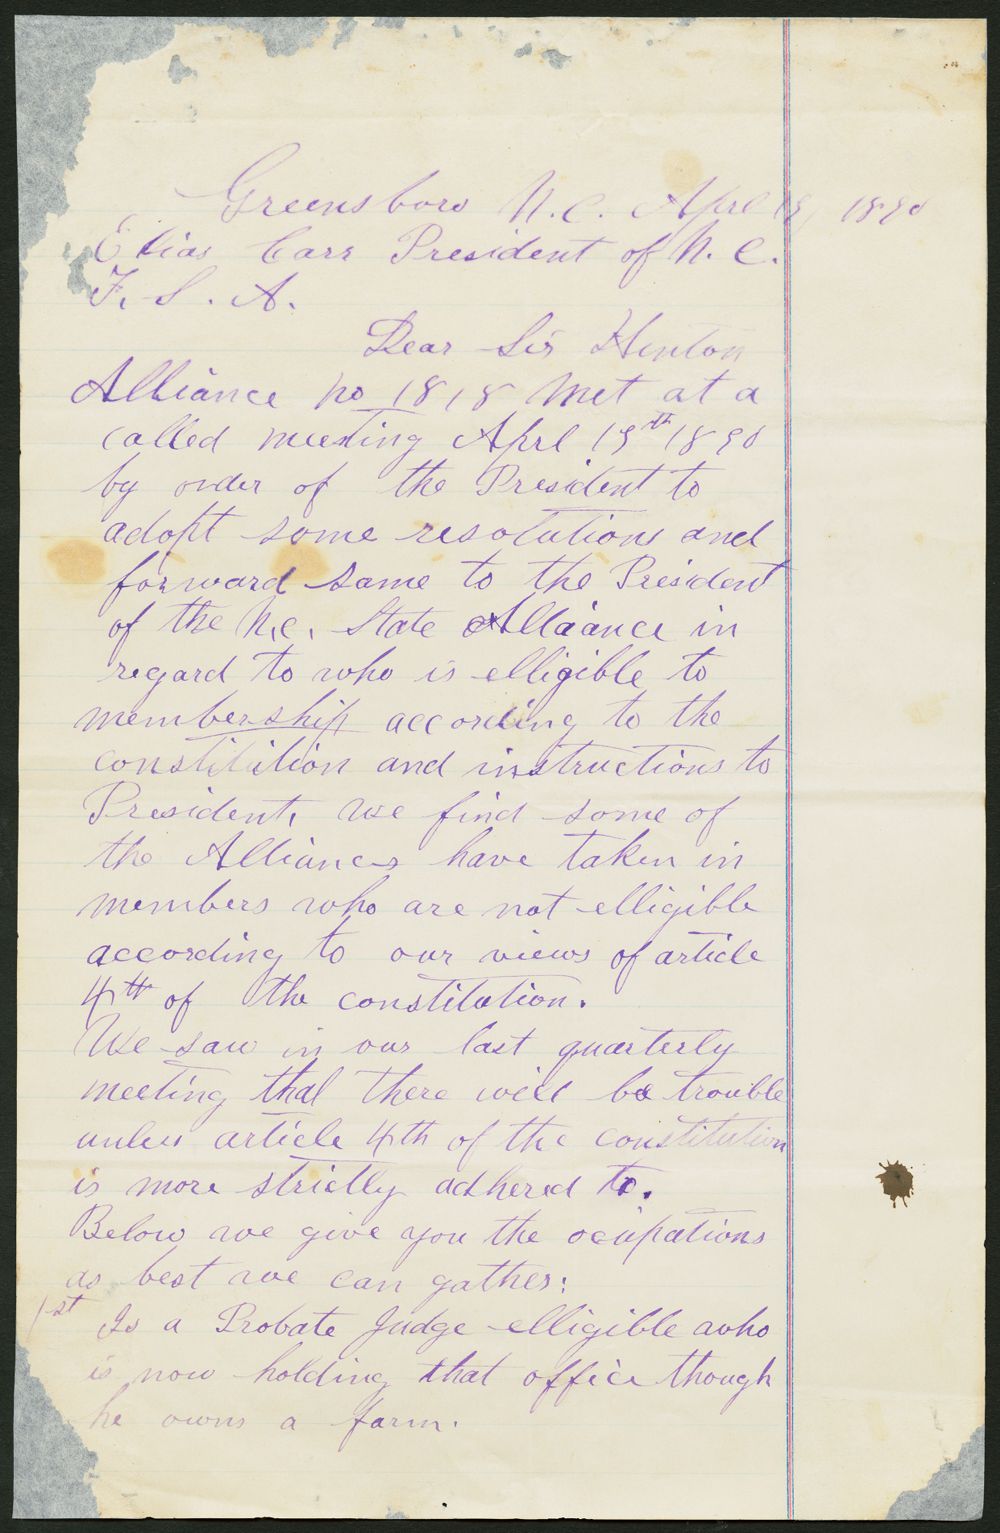 Greensboro N.C. Aprl 19, 1890
Elias Carr President of N. C.
F. S. A.
Dear Sir Hinton
Alliance No 1818 Met at a
called meeting Aprl 19th 1890
by order of the President to
adopt some resolutions and
forward same to the President
of the N.C. State Alliance in
regard to who is elligible to
membership according to the
constitution and instructions to
President, we find some of
the Alliances have taken in
members who are not elligible
according to our views of article
4th of the constitution.
We saw in our last quarterly
meeting that there will be trouble
unless article 4th of the constitution
is more strictly adhered to.
Below we give you the ocupations
as best we can gather:
1st Is a Probate Judge elligible who
is now holding that office though
he owns a farm.